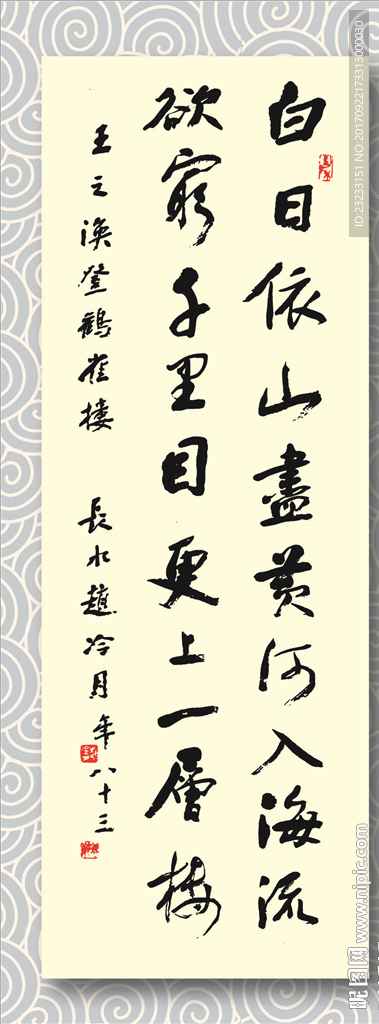 白日依山盡黄河入海流
欲窮千里目更上一層樓
王之渙登鶴雀樓
長水趙冷月年八十三
ID:23233151 NO:20170922173313000030
昵图网 www.nipic.com